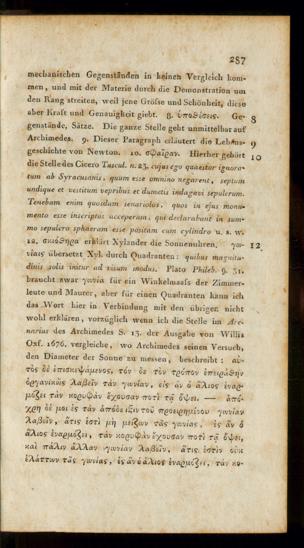 287
mechanischen Gegenständen in keinen Vergleich kom-
men, und mit der Materie durch die Demonstration um
den Rang streiten, weil jene Grösse und Schönheit, diese
aber Kraft und Genauigkeit giebt. 8. ὑποθέσεις. Ge- 8
genstände, Sätze. Die ganze Stelle geht unmittelbar auf
Archimedes. 9. Dieser Paragraph erläutert die Lebens- 9
geschichte von Newton. 10. σφαῖραν. Hierher gehört 10
die Stelle des Cicero Tuscul. n. 23. cujus ego quaestor ignora-
tum ab Syracusanis, quum esse omnino negarent, septum
undique et vestitum vepribus et dumetis indagavi sepulcrum.
Tenebam enim quosdam senariolos, quos in ejus monu-
mento esse inscriptos acceperam, qui declarabant in sum-
mo sepulcro sphaeram esse positam cum cylindro u. s. w.
12. σκιόθηρα erklärt Xylander die Sonnenuhren, γω- 12
νίας übersetzt Xyl. durch Quadranten: quibus magnitu-
dinis solis initur ad visum modus. Plato Phileb. 9. 31.
braucht zwar γωνία für ein Winkelmaass der Zimmer-
leute und Maurer, aber für einen Quadranten kann ich
das Wort hier in Verbindung mit den übrigen nicht
wohl erklären, vorzüglich wenn ich die Stelle im Are-
narius des Archimedes S. 13. der Ausgabe von Willis
Oxf. 1676. vergleiche, wo Archimedes seinen Versuch,
den Diameter der Sonne zu messen, beschreibt: αὐ-
τὸς δὲ ἐπισκεψάμενος, τόν δε τὸν τρόπον ἐπειράθην
ὀργανικῶς λαβεῖν τὰν γωνίαν, εἰς ἃν ὁ ἅλιος ἐναρ-
μόζει τὰν κορυφὰν ἔχουσαν ποτὶ τᾷ ὄψει. — ἀπό-
χρη δέ μοι ἐς τὰν ἀπόδειξιν τοῦ προειρημένου γωνίαν
λαβεῖν, ἅτις ἐστὶ μὴ μείζων τᾶς γωνίας, εἰς ἃν ὁ
ἅλιος ἐναρμόζει, τὰν κορυφὰν ἔχουσαν ποτὶ τᾷ ὄψει,
καὶ πάλιν ἄλλαν γωνίαν λαβεῖν, ἅτις ἐστὶν οὐκ
ἐλάττων τᾶς γωνίας, εἰς ἃν ὁ ἅλιος ἐναρμόζει, τὰν κο-